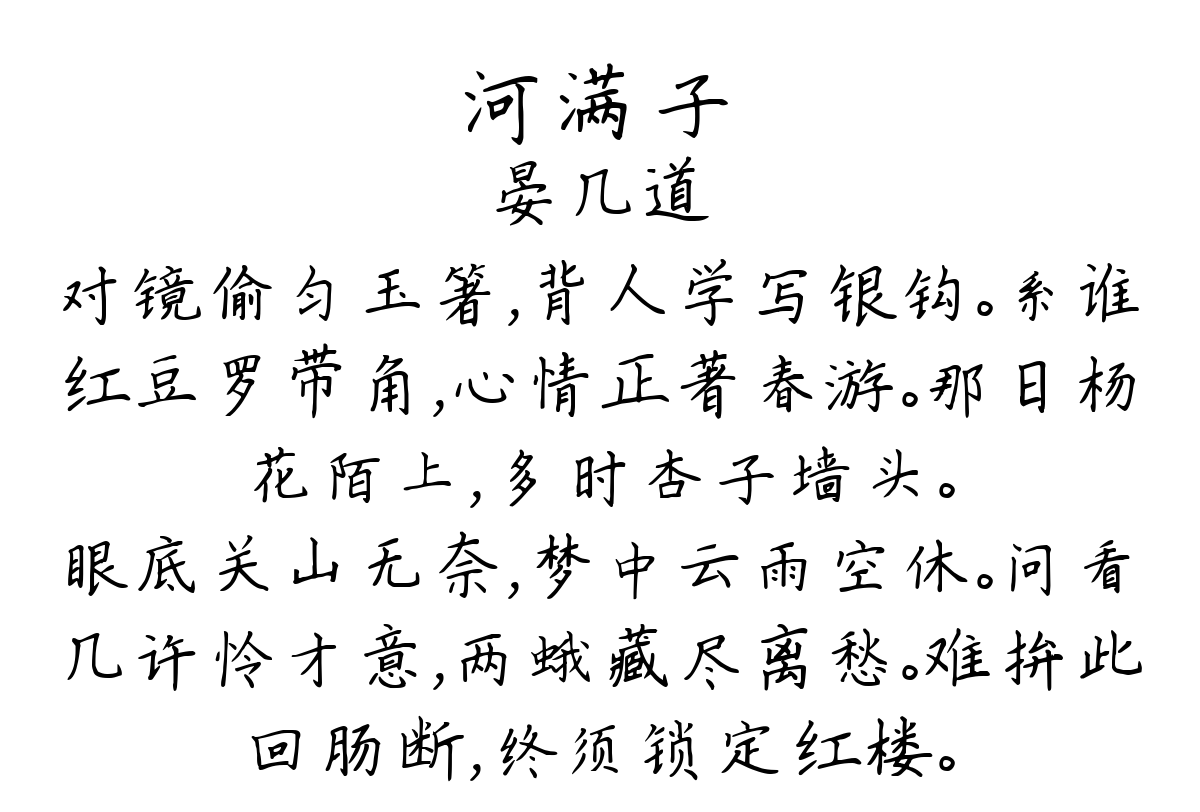 河满子
晏几道
对镜偷匀玉箸,背人学写银钩。系谁
红豆罗带角,心情正著春游。那日杨
花陌上,多时杏子墙头。
眼底关山无奈,梦中云雨空休。问看
几许怜才意,两蛾藏尽离愁。难拚此
回肠断,终须锁定红楼。